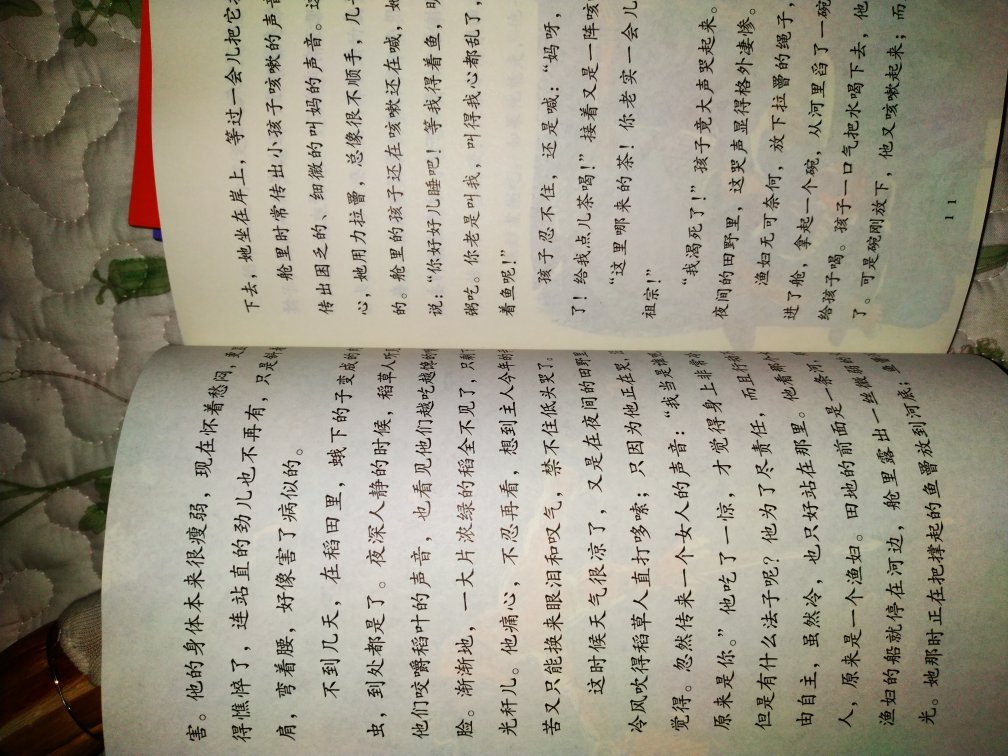 害。他的身体本来很瘦弱，现在怀着愁闷，更显
得憔悴了，连站直的劲儿也不再有，只是斜
肩，弯着腰，好像害了病似的。
不到几天，在稻田里，蛾下的子变成的
虫，到处都是了。夜深人静的时候，稻草人听
他们咬嚼稻叶的声音，也看见他们越吃越馋的
脸。渐渐地，一大片浓绿的稻全不见了，只剩
光秆儿。他痛心，不忍再看，想到主人今年的
苦又只能换来眼泪和叹气，禁不住低头哭了。
这时候天气很凉了，又是在夜间的田野里
冷风吹得稻草人直打哆嗦；只因为他正在哭，
觉得。忽然传来一个女人的声音：“我当是谁
原来是你。”他吃了一惊，才觉得身上非常
但是有什么法子呢？他为了尽责任，而且行
由自主，虽然冷，也只好站在那里。他看那个
人，原来是一个渔妇。田地的前面是一条河，
渔妇的船就停在河边，舱里露出一丝微弱的
光。她那时正在把撑起的鱼罾放到河底；
下去，她坐在岸上，等过一会儿把它
舱里时常传出小孩子咳嗽的声音
传出困乏的、细微的叫妈的声音。这
心，她用力拉罾，总像很不顺手，几
的。舱里的孩子还在咳嗽还在喊，她
说：“你好好儿睡吧！等我得着鱼，明
粥吃。你老是叫我，叫得我心都乱了，
着鱼呢！”
孩子忍不住，还是喊：“妈呀，
了！给我点儿茶喝！”接着又是一阵咳
“这里哪来的茶！你老实一会儿
祖宗！”
“我渴死了！”孩子竟大声哭起来。
夜间的田野里，这哭声显得格外凄惨。
渔妇无可奈何，放下拉罾的绳子，
进了舱，拿起一个碗，从河里舀了一碗
给孩子喝。孩子一口气把水喝下去，他
了。可是碗刚放下，他又咳嗽起来；而
11